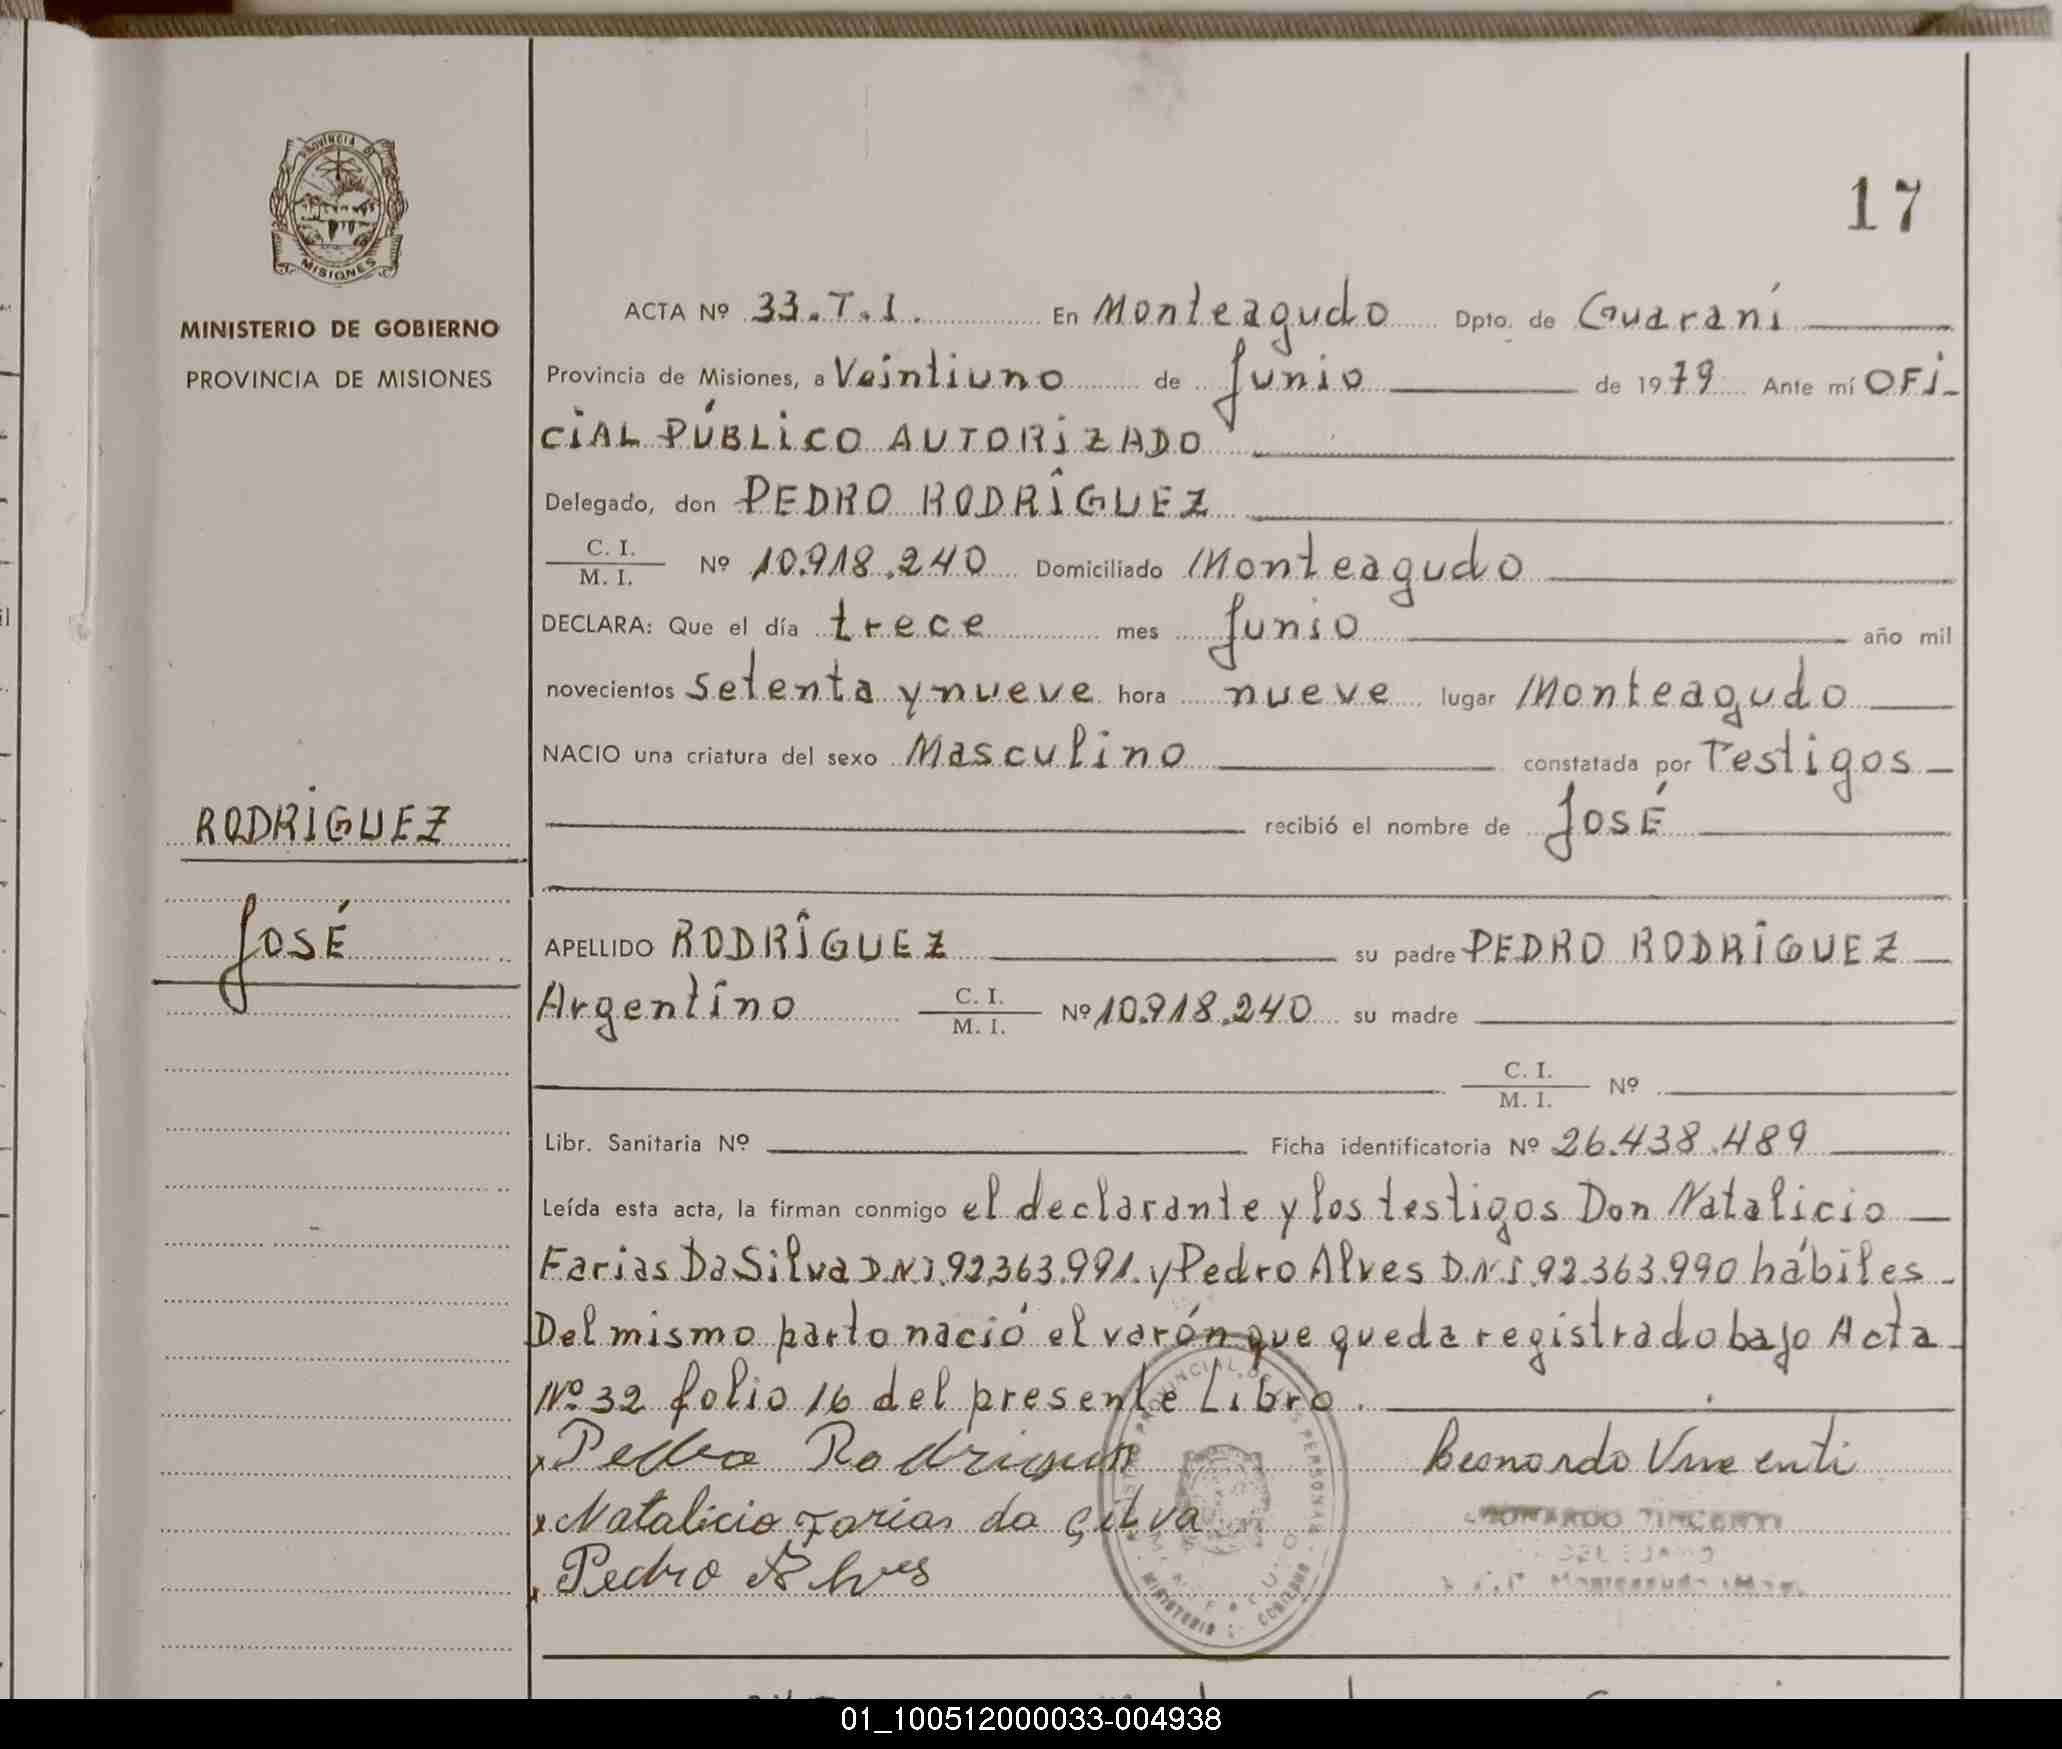 PROVINCIA DE
MISIONES
MINISTERIO DE GOBIERNO
PROVINCIA DE MISIONES
RODRIGUEZ
JOSÉ
17
ACTA Nº 33.T.I. En Monteagudo Dpto. de Guaraní
Provincia de Misiones, a Veintiuno de Junio de 1979 Ante mí OFI-
CIAL PÚBLICO AUTORIZADO
Delegado, don PEDRO RODRÍGUEZ
C. I.
M. I. Nº 10.918.240 Domiciliado Monteagudo
DECLARA: Que el día trece mes Junio año mil
novecientos setenta y nueve hora nueve lugar Monteagudo
NACIO una criatura del sexo Masculino constatada por Testigos
recibió el nombre de JOSÉ
APELLIDO RODRÍGUEZ su padre PEDRO RODRÍGUEZ
Argentino C. I.
M. I. Nº 10.918.240 su madre
C. I.
M. I. Nº
Libr. Sanitaria Nº Ficha identificatoria Nº 26.438.489
Leída esta acta, la firman conmigo el declarante y los testigos Don Natalicio
Farias Da Silva D.N.I.92.363.991. y Pedro Alves D.N.I.92.363.990 hábiles
Del mismo parto nació el varón que queda registrado bajo Acta
Nº 32 folio 16 del presente Libro.
x Pedro Rodriguez
x Natalicio Farias da Silva
x Pedro Alves
Leonardo Vincenti
LEONARDO VINCENTI
DELEGADO
PROVINCIAL DE
PERSONAS
MINISTERIO GOBIERNO
01_100512000033-004938